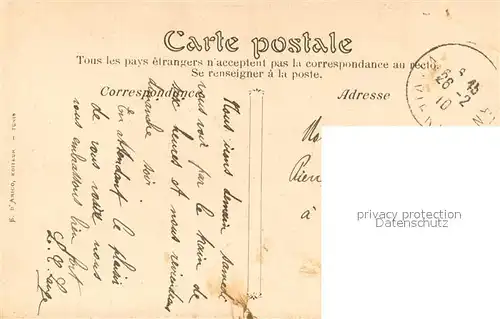 Carte postale
Tous les pays étrangers n'acceptent pas la correspondance au recto.
Se renseigner à la poste.
Correspondance
Adresse
Nous irons demain samedi
vous voir par le train de
six heures et nous reviendrons
dimanche soir.
En attendant le plaisir
de vous voir nous
vous embrassons bien fort
à
F. D'AMICO, EDITEUR — TUNIS
privacy protection
Datenschutz
26-2
10